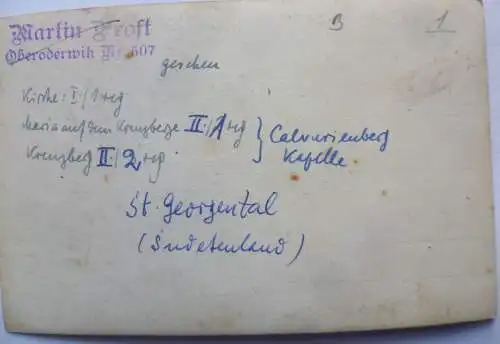 B 1
Martin Frost
Oberoderwitz Nr. 607
gesehen
Kirche: I/1 reg
Maria auf dem Kreuzberge II/1 reg
Kreuzberg II/2 reg
} Calvarienberg
Kapelle
St. Georgental
(Sudetenland)